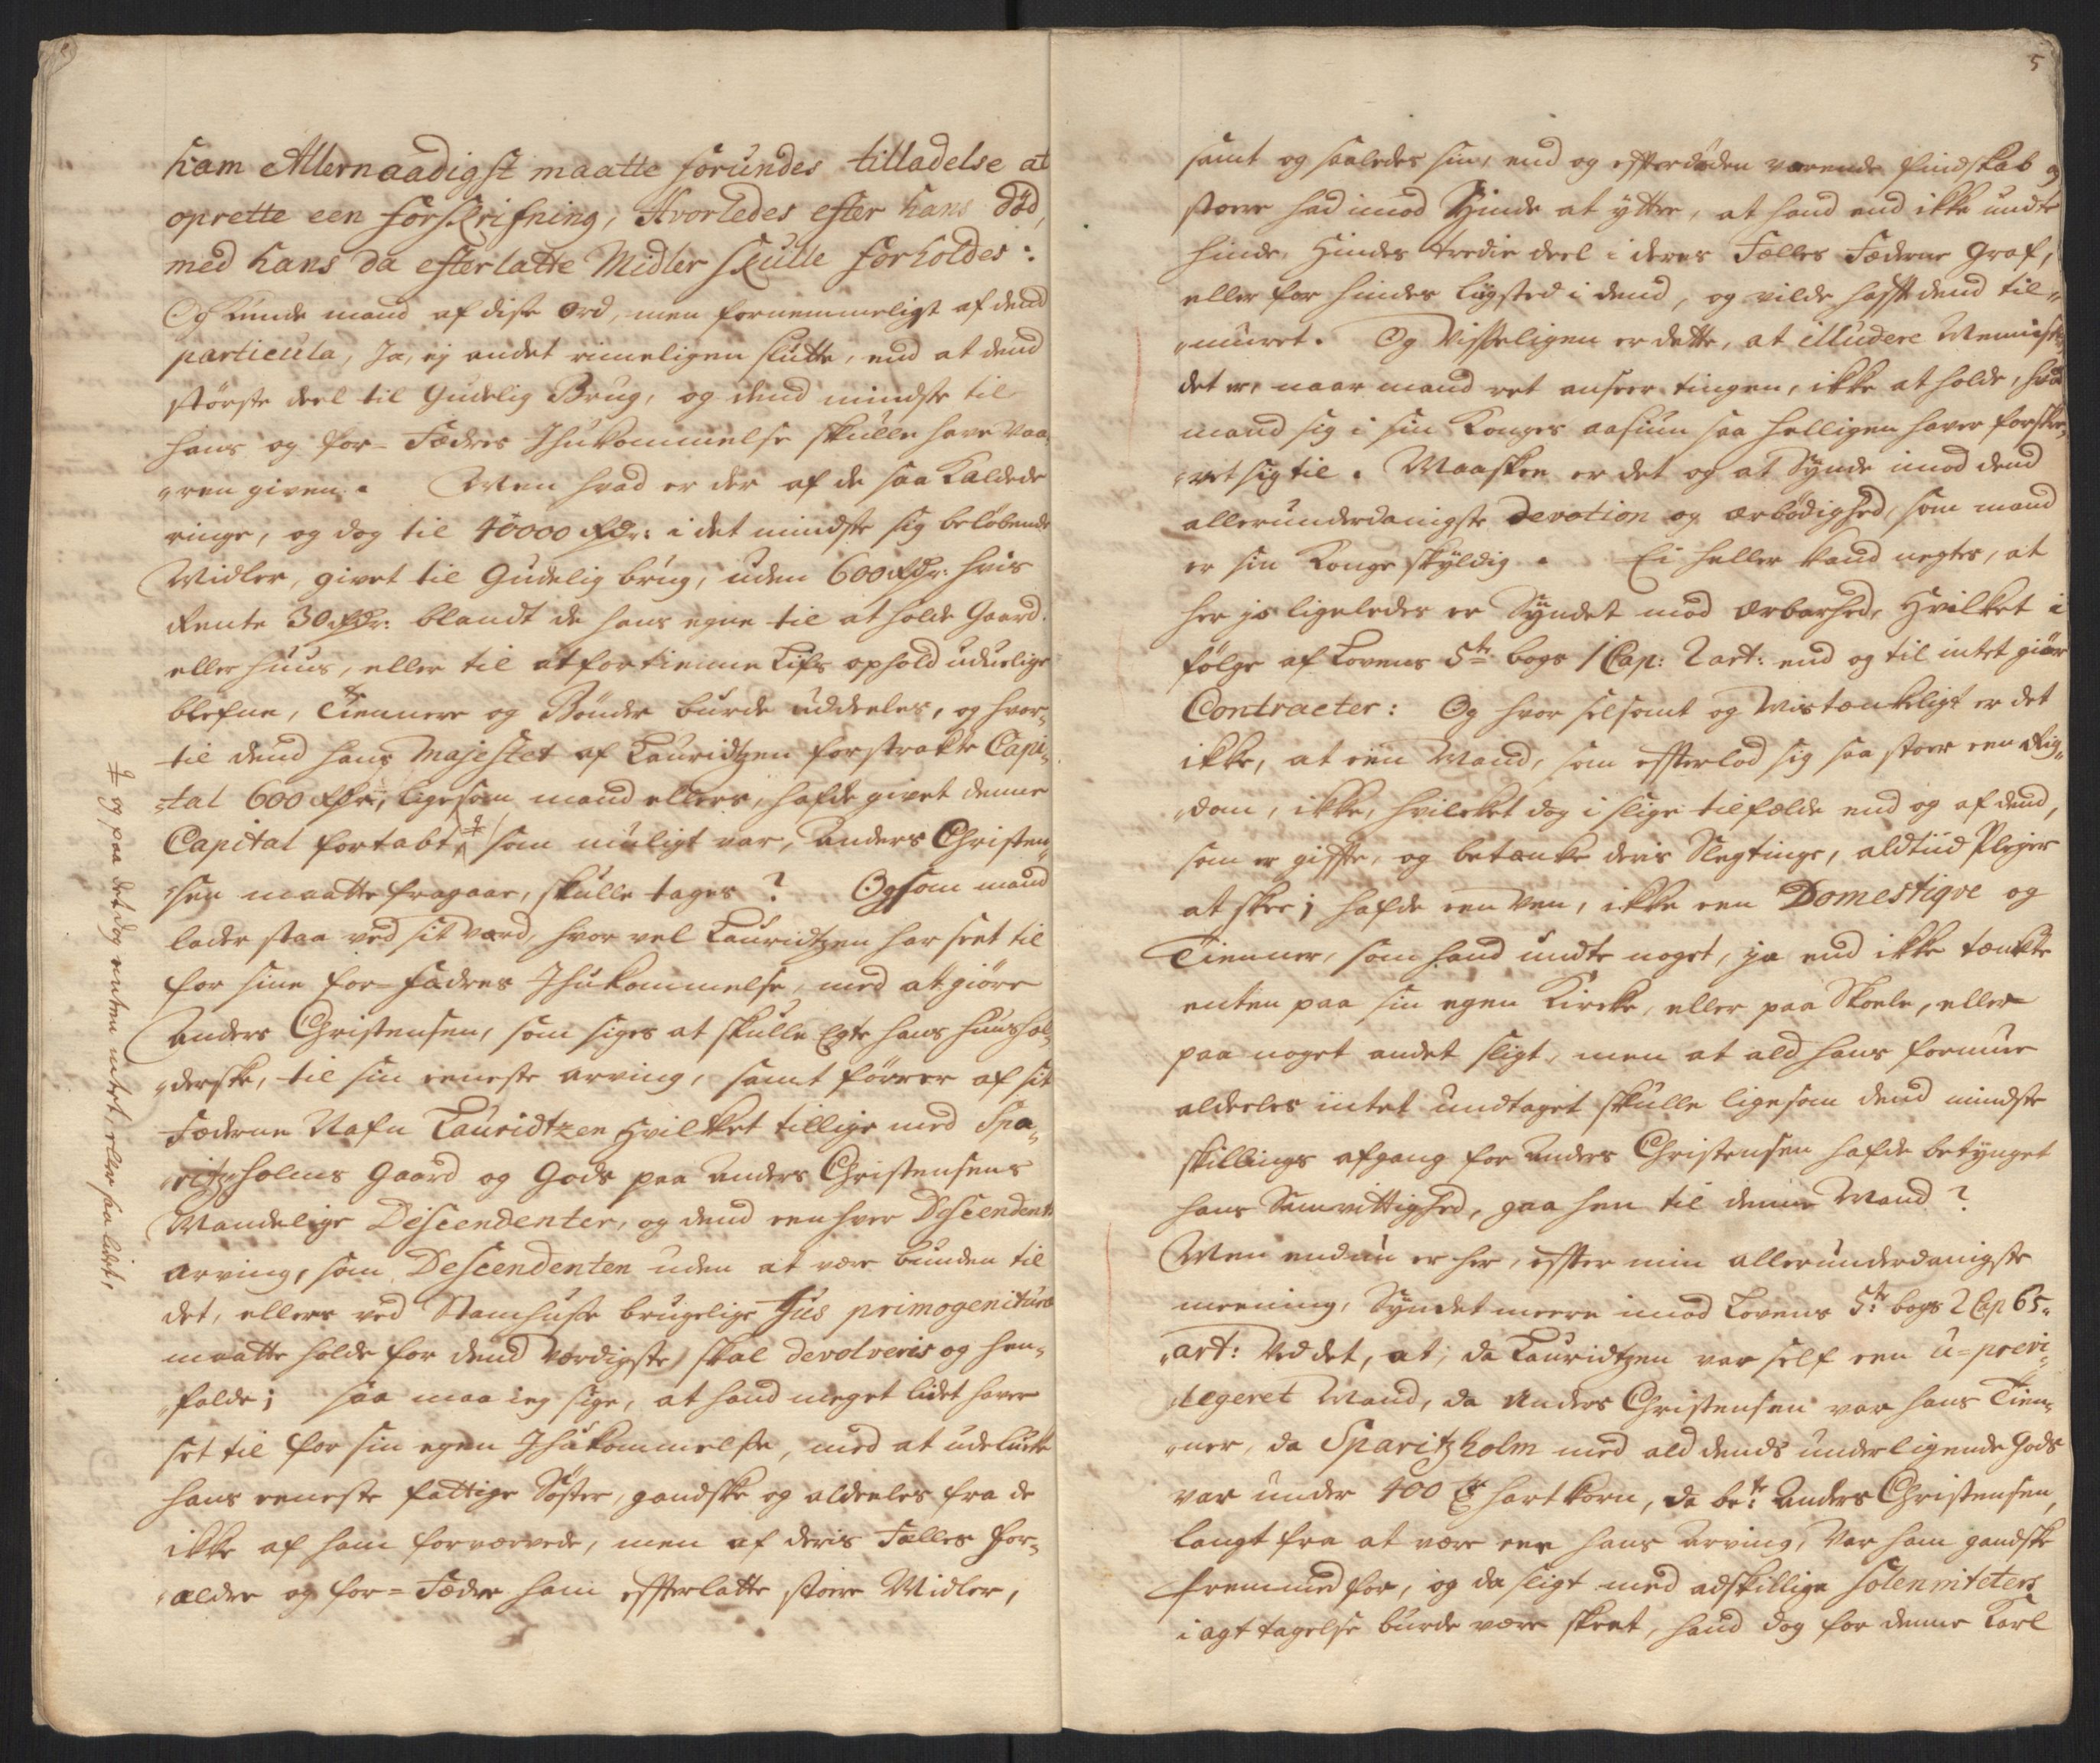 ham Allernaadigst maatte forundes tilladelse at
oprette een forskrifning, Hvorledes efter hans död,
med hans da efterlatte Midler skulle forholdes:
Og kunde mand af disse ord, men fornemmeligst af dend
particula, Ja, ej andet rimeligen slutte, end at dend
störste deel til Gudelig Brug, og dend mindste til
hans og for-Fædres Ihukommelse skulle have vaa„
„ren given. Men hvad er der af de saa kaldede
ringe, og dog til 40000 Rdr: i det mindste sig belöbende
Midler, givet til Gudelig brug, uden 600 Rdr: hvis
Rente 30 Rdr: blandt de hans egne til at holde Gaard
eller huus, eller til at fortienne Lifs ophold uduelige
blefne, Tiennere og Bönder burde uddeeles, og hvor„
til dend hans Majestet af Lauridtzen forstrakte Capi„
„tal 600 Rdr, ligesom mand ellers, hafde givet denne
Capital fortabt, # som muligt var, Anders Christen„
„sen maatte fragaae, skulle tages? Og som mand
lader staa ved sit værd, hvor vel Lauridtzen har seet til
for sine for-fædres Ihukommelse, med at giöre
Anders Christensen, som siges at skulle Egte hans huushol„
„derske, til sin eeneste arving, samt förrer af sit
Fæderne Nafn Lauridtzen Hvilket tillige med Spa„
„ritzholms Gaard og Gods paa Anders Christensens
Mandelige Descendenter, og dend een hver Descendents
arving, som Descendenten uden at være bunden til
det, ellers ved Stamhuse brugelige Jus primogenituræ
maatte holde for dend værdigste, skal devolveris og hen„
„falde; saa maa ieg sige, at hand meget lidet haver
set til for sin egen Ihukommelse, med at udelucke
hans eeneste fattige Söster, gandske og aldeeles fra de
ikke af ham forværvede, men af deris Fælles for„
„ældre og for=Fædre ham efterlatte store Midler,
# og paa det dog enten intet, eller saa lidet,
5
samt og saaledes sin, end og efter döden varende fiendskab og
store had imod Hinde at yttre, at hand end ikke undte
hinde, Hindes tredie deel i deres Fælles Fæderne Graf,
eller for hindes liigsted i dend, og vilde hafft dend til„
„muret. Og Visseligen er dette, at illudere Mennisker,
det er, naar mand ret anseer tingen, ikke at holde, hvad
mand sig i sin Konges aasiun saa helligen haver forskre„
„vet sig til. Maaskee er det og at Synde imod dend
allerunderdanigste Devotion og ærbödighed, som mand
er sin Konge skyldig. Ei heller kand negtes, at
her jo ligeledes er Syndet mod Ærbarhed, Hvilket i
fölge af Lovens 5te bogs 1 Cap: 2 art: end og til intet giör
Contracter: Og hvor selsomt og Mistænkeligt er det
ikke, at een Mand, som efterlod sig saa stoer een Rig„
„dom, ikke, hvilcket dog i slige tilfælde end og af dend,
som er giffte, og betænke deris Slegtinge, aldtiid Plejer
at skee; hafde een Ven, ikke een Domestiqve og
Tienner, som hand undte noget, ja end ikke tænkte
enten paa sin egen Kircke, eller paa Skoele, eller
paa noget andet sligt, men at ald hans formue
aldeeles intet undtaget skulle ligesom dend mindste
skillings afgang for Anders Christensen hafde betynget
hans Samvittighed, gaa hen til denne Mand?
Men endnu er her, effter min allerunderdanigste
meening, Syndet meere imod Lovens 5te bogs 2 Cap 65„
„art: Ved det, at, da Lauridtzen var self een u=previ„
„legeret Mand, da Anders Christensen var hans Tien„
„ner, da Sparitzholm med ald dends underliggende Gods
var under 400 Tdr hartkorn, da bete Anders Christensen,
langt fra at være een hans Arving, Var ham gandske
fremmed for, og da sligt med adskillige solenniteters
iagttagelse burde være skeet, hand dog for denne Karl